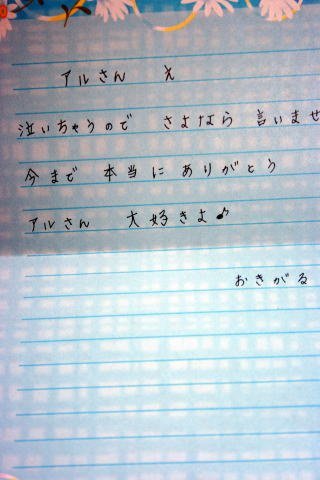 アルさん え
泣いちゃうので さよなら 言いませ
今まで 本当に ありがとう
アルさん 大好きよ♪
おきがる